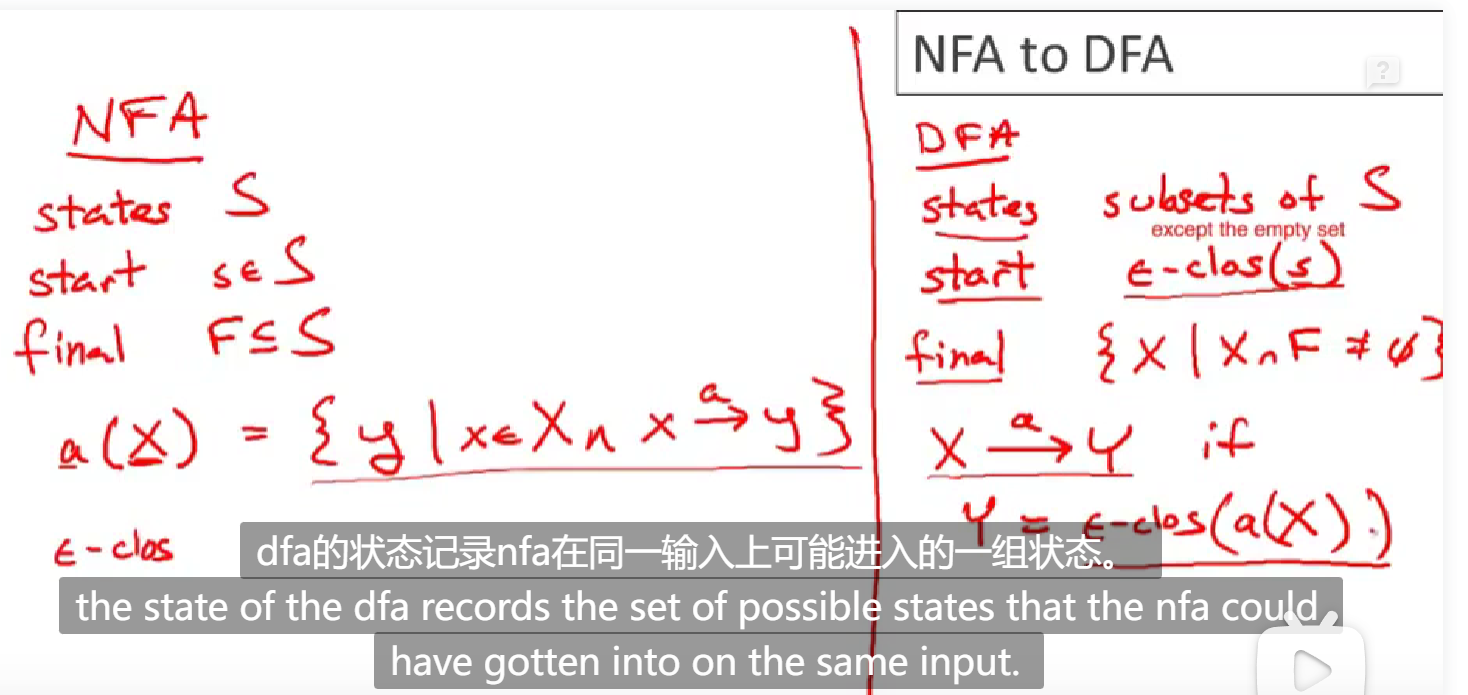 NFA
states S
start s∈S
final F⊆S
a(X) = {y | x∈X ∩ x →a y}
ϵ-clos
NFA to DFA
?
DFA
states subsets of S
except the empty set
start ϵ-clos(s)
final {X | X∩F ≠ ϕ}
X →a Y if
Y = ϵ-clos(a(X))
dfa的状态记录nfa在同一输入上可能进入的一组状态。
the state of the dfa records the set of possible states that the nfa could
have gotten into on the same input.